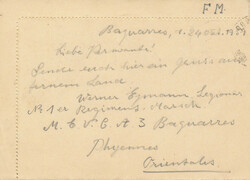 F M.
Baquarres, 1.24 Okt. 1939
Liebe Verwandte!
Sende euch hierein gruss aus
fernem Land
Werner Egmann Legioner
№ 1er Regiment. Marsch.
M. E. V. C. A. 3 Baquarres
Phyennes
Orientales.